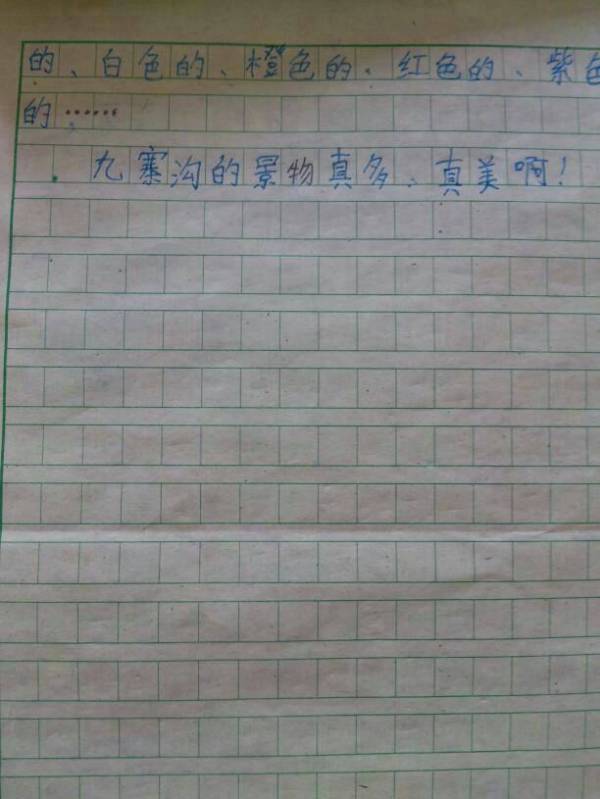 的、白色的、橙色的、红色的、紫色
的……
九寨沟的景物真多，真美啊！